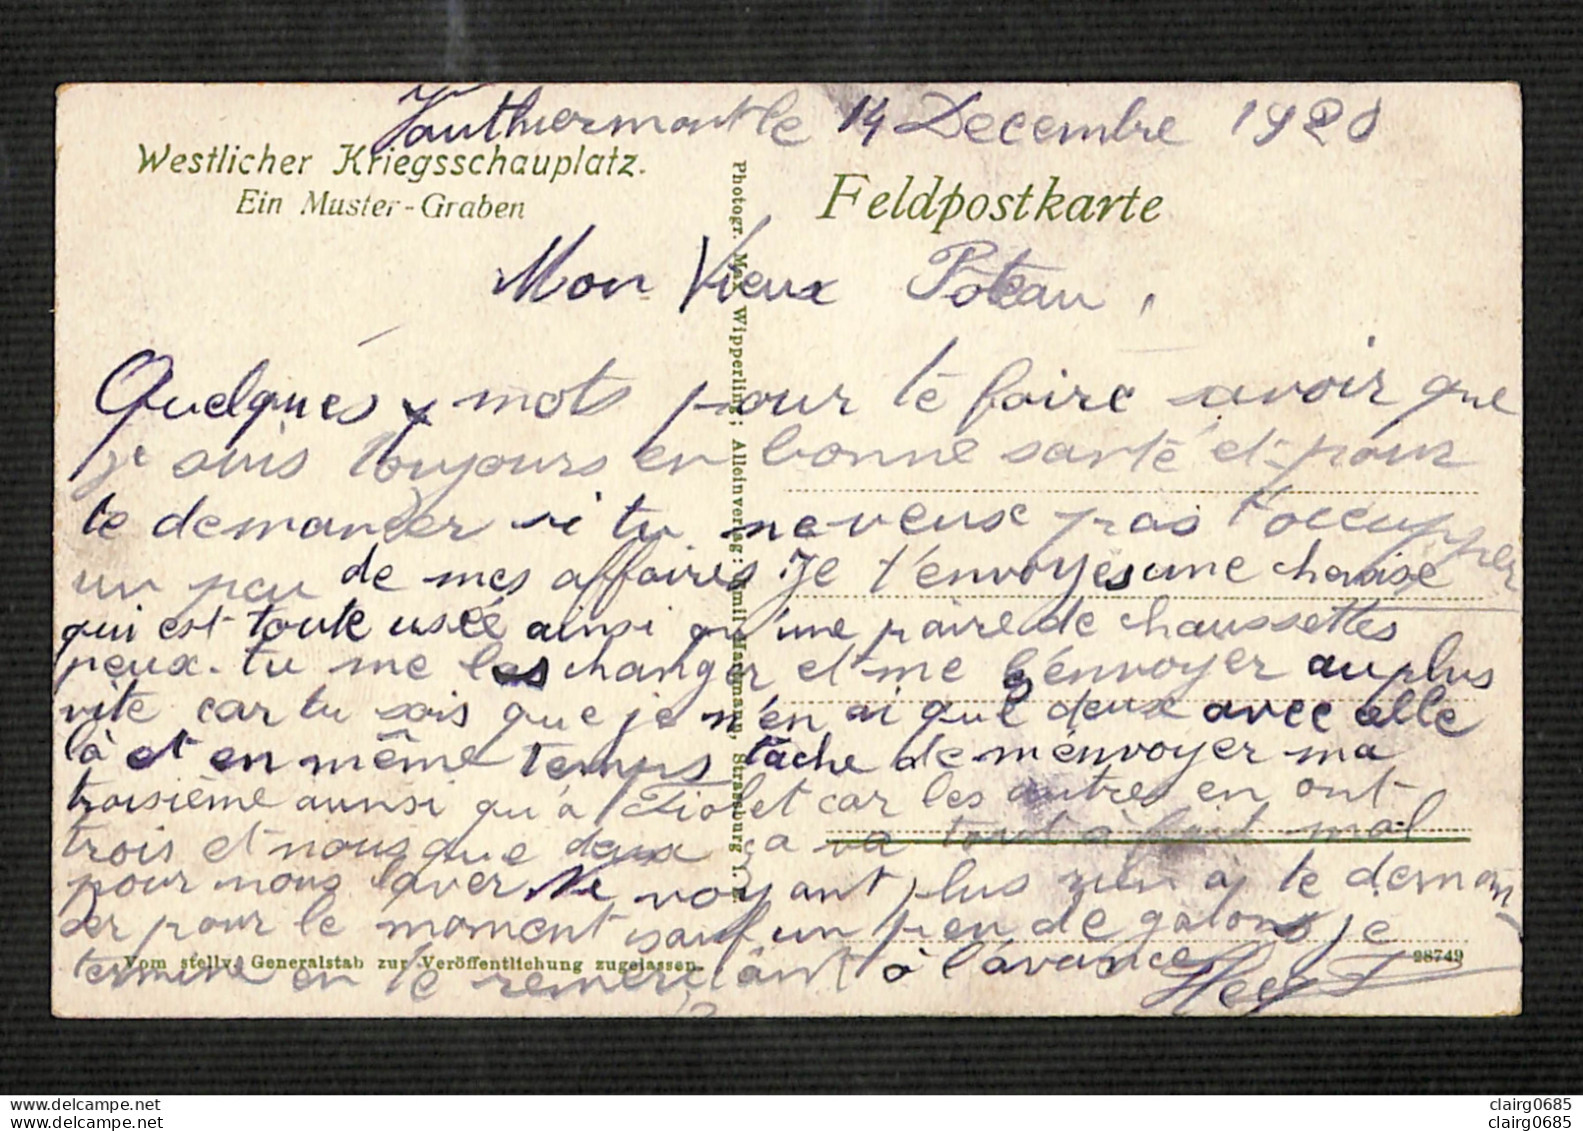 Vauthiermont le 14 Decembre 1920
Westlicher Kriegsschauplatz.
Ein Muster-Graben
Feldpostkarte
Photogr. Max Wipperling; Alleinverlag: Emil Hartmann, Strassburg i. E.
Mon Vieux Poteau,
Quelqués mots pour te faire savoir que
je suis toujours en bonne santé et pour
te demander si tu ne veux pas t'occupper
un peu de mes affaires. Je t'envoyes une chemise
qui est toute usée ainsi qu'une paire de chaussettes
peux-tu me les changer et me l'envoyer au plus
vite car tu sais que je n'en ai que deux avec celle
là et en même temps tâche de m'envoyer ma
troisième ainsi qu'à Fiolet car les autres en ont
trois et nous que deux ça va tout à fait mal
pour nous laver. Ne voyant plus rien a te deman-
der pour le moment sauf un peu de galons je
termine en te remerciant à l'avance
Vom stellv. Generalstab zur Veröffentlichung zugelassen.
28749
clairg0685
clairg0685
clairg0685
clairg0685